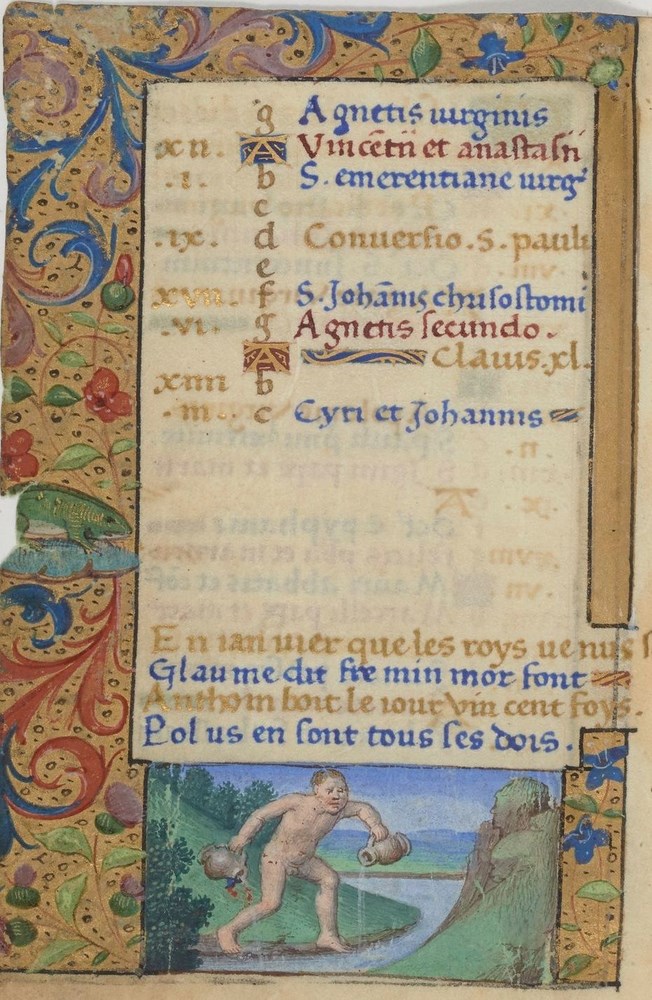 g Agnetis uirginis
xii. A Vincētii et anastasii
.i. b S. emerentiane uirgˀ
c
.ix. d Conuersio. S. pauli
e
xvii. f S. Johānis chrisostomi
.vi. g Agnetis secundo.
A Clauis.xl.
xiiii b
.iii. c Cyri et Johannis
En ianuier que les roys uenus s
Glaume dit fre min mor font
Anthoin boit le iour Vin cent foys.
Pol us en sont tous ses dois.